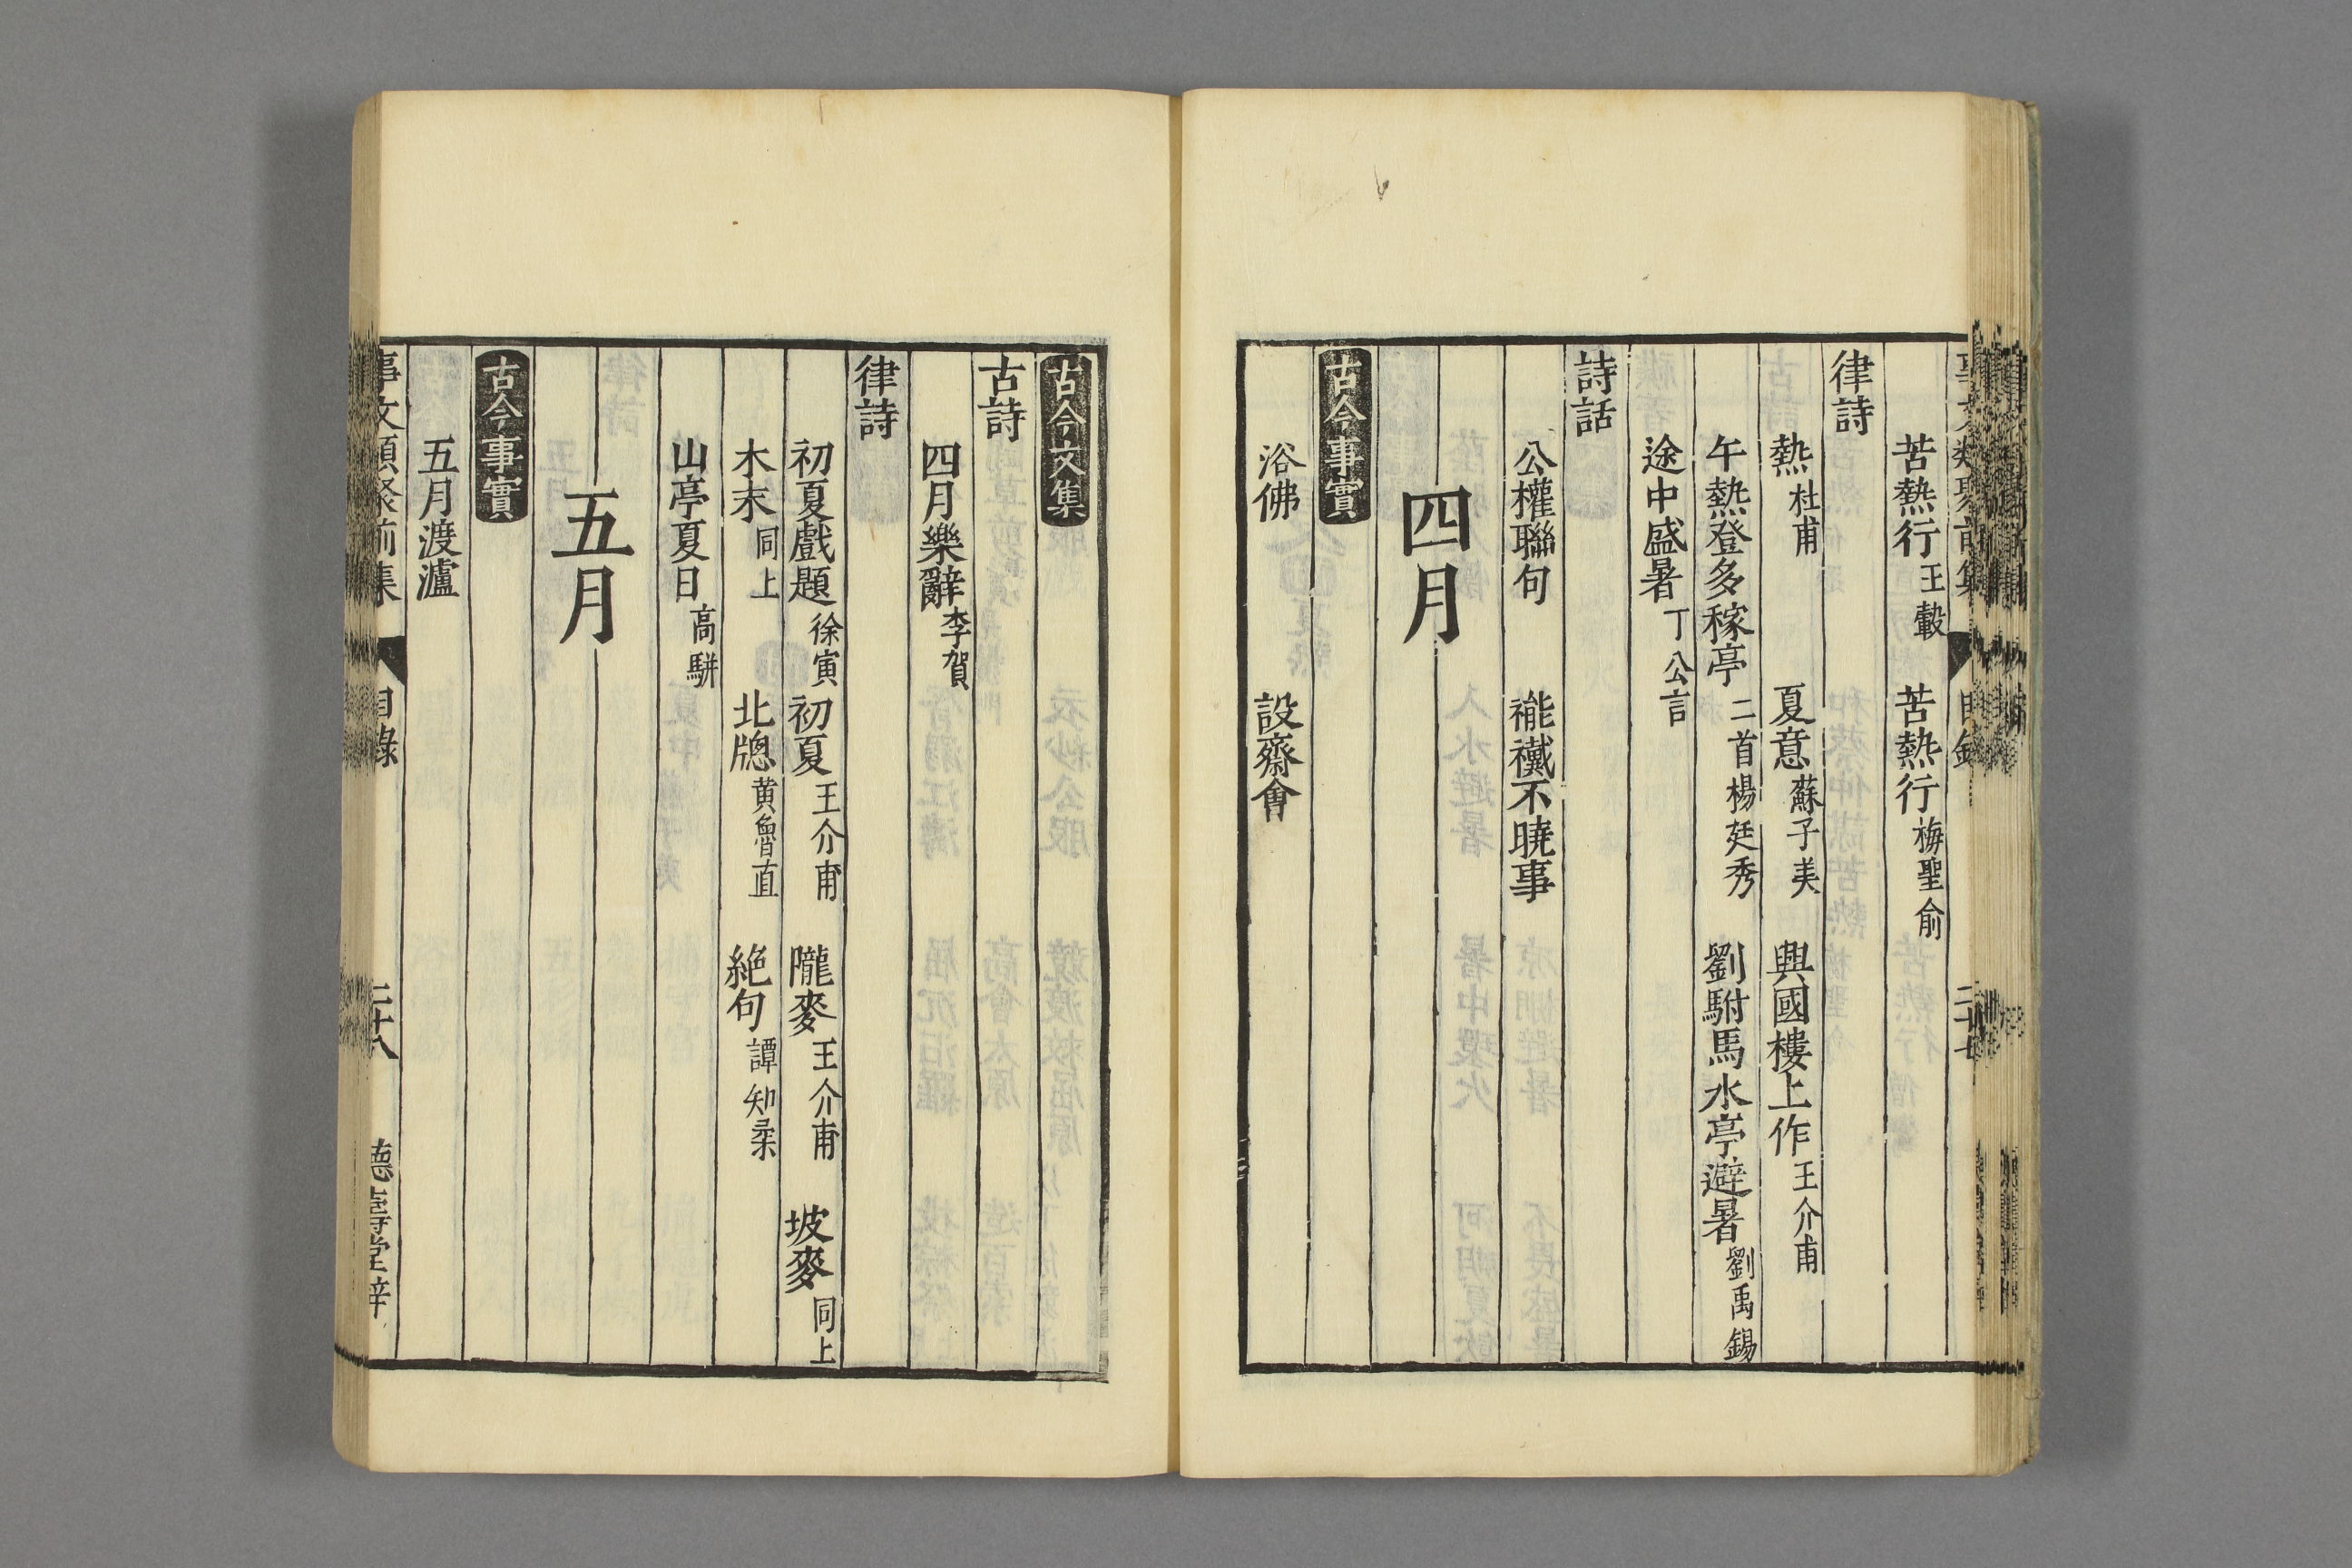 事文類聚前集 目錄 二十七
苦熱行 王轂 苦熱行 梅聖俞
律詩
熱 杜甫 夏意 蘇子美 興國樓上作 王介甫
午熱登多稼亭 二首楊廷秀 劉駙馬水亭避暑 劉禹錫
途中盛暑 丁公言
詩話
公權聯句 褦襶不曉事
四月
古今事實
浴佛 設齋會
古今文集
古詩
四月樂辭 李賀
律詩
初夏戲題 徐寅 初夏 王介甫 隴麥 王介甫 坡麥 同上
木末 同上 北牕 黄魯直 絶句 譚知柔
山亭夏日 高駢
五月
古今事實
五月渡瀘
事文類聚前集 目錄 二十八 德壽堂梓